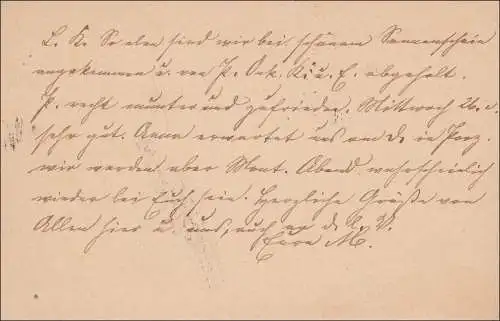 L. K. So eben sind wir bei schönem Sonnenschein
angekommen u. von P. Onk. K. u. E. abgeholt.
P. recht munter und zufrieden. Mittwoch 26. c.
sehr gut. Anna erwartet uns an d. in
wir werden aber Mont. Abend wahrscheinlich
wieder bei Euch sein. Herzliche Grüße von
Allen hier u. uns, auch an d. l. V.
Eure M.